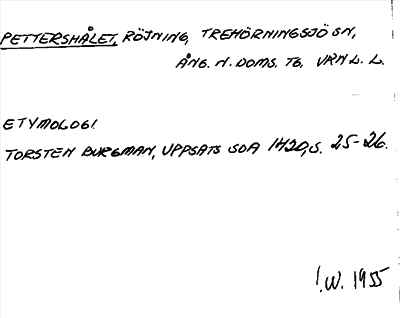 PETTERSHÅLET, RÖJNING, TREHÖRNINGSJÖ SN,
ÅNG. N. DOMS. TG. VRN L. L.
ETYMOLOGI.
TORSTEN BURGMAN, UPPSATS SOA 1420, S. 25-26.
I.W. 1955